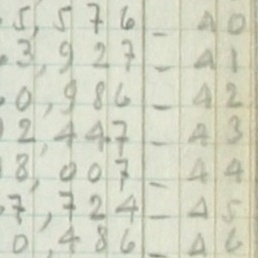 5,576 - 40
3,927 - 41
0,986 - 42
2,447 - 43
8,007 - 44
7,724 - 45
0,486 - 46